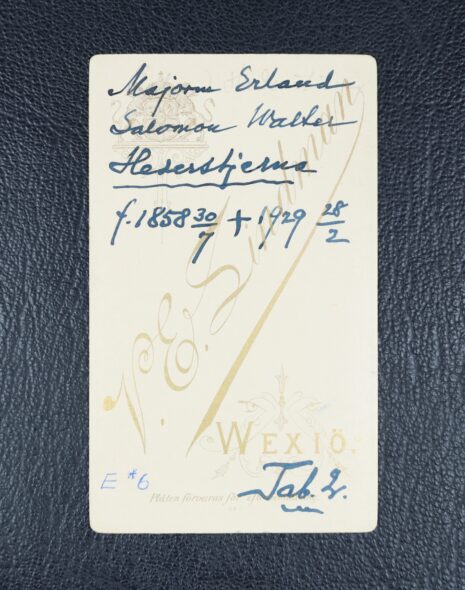 Majoren Erland
Salomon Walter
Hederstjerna
f. 1858 30/7 + 1929 28/2
P.E. Lindman
WEXIÖ.
E #6
Tab. 2.
Plåten förvaras för